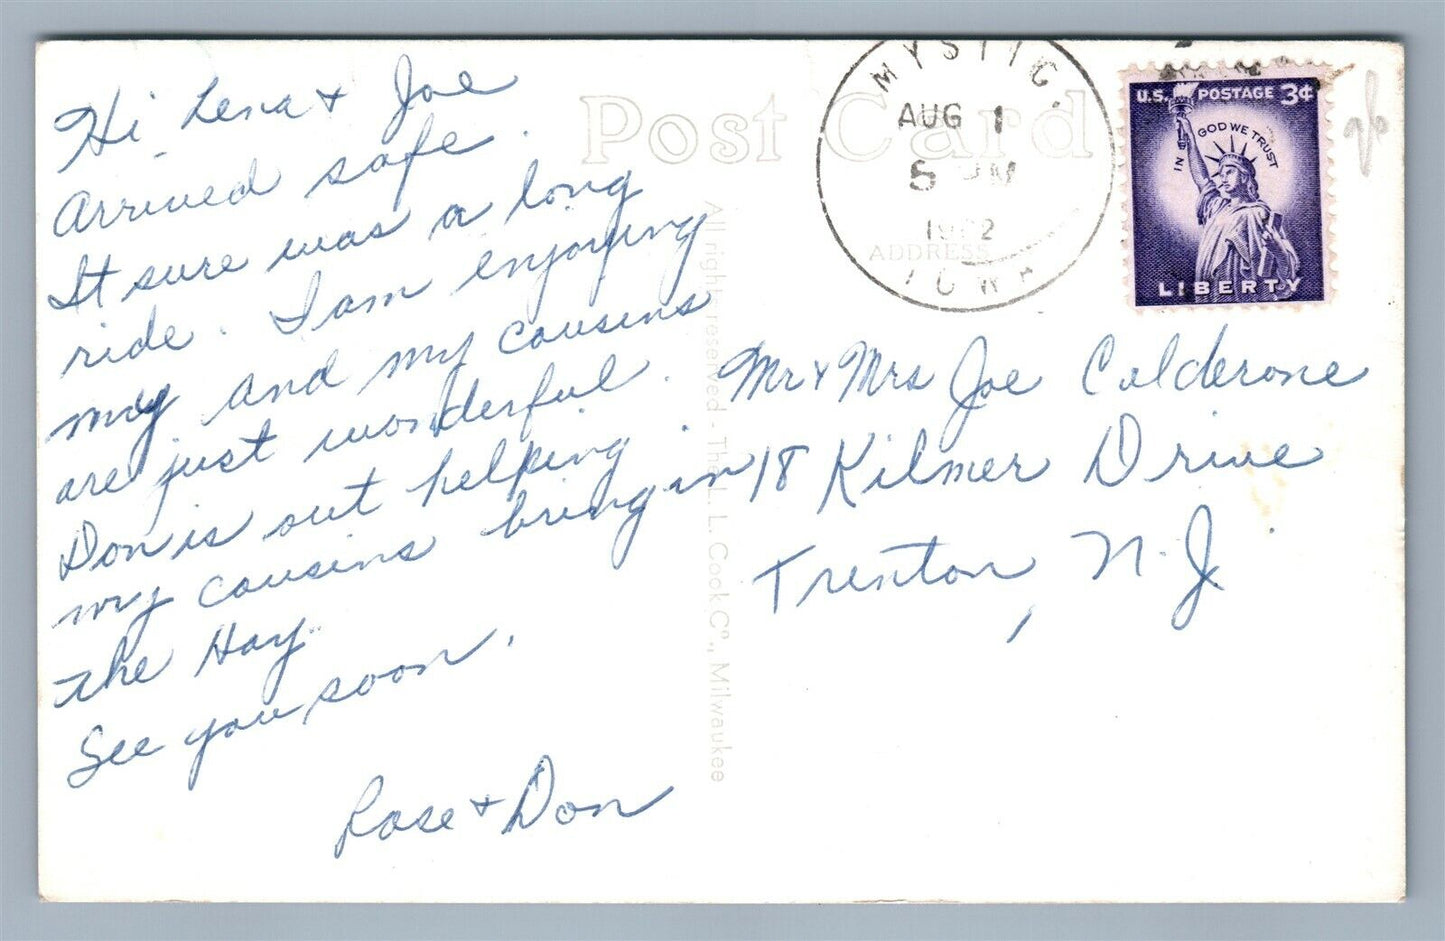 Hi Lena + Joe
Arrived safe.
It sure was a long
ride. I am enjoying
my and my cousins
are just wonderful.
Don is out helping
my cousins bring in
the Hay.
See you soon.
Rose + Don
Post Card
ADDRESS
All rights reserved - The L. L. Cook Co., Milwaukee
MYSTIC,
AUG 1
PM
IOWA
U.S. POSTAGE 3¢
IN GOD WE TRUST
LIBERTY
Mr & Mrs Joe Calderone
18 Kilmer Drive
Trenton, N.J.